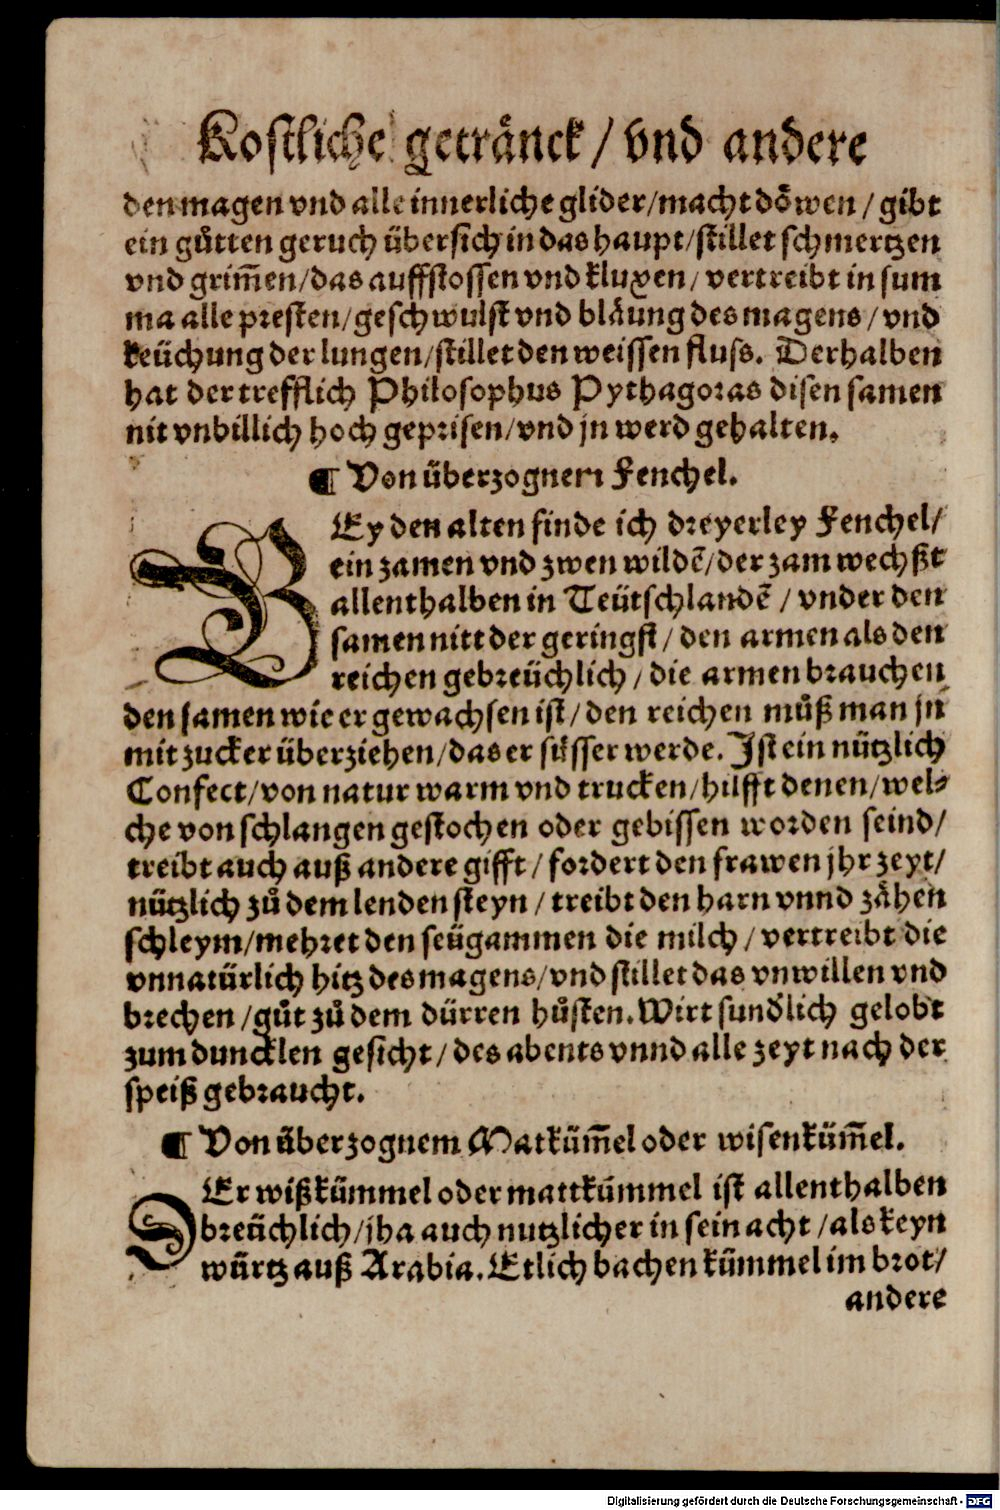 Kostliche getränck / vnd andere
den magen vnd alle innerliche glider/macht döwen / gibt
ein gůtten geruch übersich in das haupt/stillet schmertzen
vnd grim̄en/das auffstossen vnd kluxen/ vertreibt in sum
ma alle presten/geschwulst vnd bläung des magens / vnd
keüchung der lungen/stillet den weissen fluss. Derhalben
hat der trefflich Philosophus Pythagoras disen samen
nit vnbillich hoch geprisen/vnd jn werd gehalten.
¶ Von überzognem Fenchel.
BEy den alten finde ich dreyerley Fenchel/
ein zamen vnd zwen wildẽ/der zam wechßt
allenthalben in Teütschlandẽ / vnder den
samen nitt der geringst / den armen als den
reichen gebreüchlich / die armen brauchen
den samen wie er gewachsen ist / den reichen můß man jn
mit zucker überziehen/das er süsser werde. Ist ein nützlich
Confect/von natur warm vnd trucken/hilfft denen/wel-
che von schlangen gestochen oder gebissen worden seind/
treibt auch auß andere gifft / fordert den frawen jhr zeyt/
nützlich zů dem lenden steyn / treibt den harn vnnd zähen
schleym/mehret den seügammen die milch / vertreibt die
vnnatürlich hitz des magens/vnd stillet das vnwillen vnd
brechen /gůt zů dem dürren hůsten. Wirt sundꝰlich gelobt
zum duncklen gesicht / des abents vnnd alle zeyt nach der
speiß gebraucht.
¶ Von überzognem Matküm̄el oder wisenküm̄el.
DEr wißkümmel oder mattkümmel ist allenthalben
breüchlich/jha auch nutzlicher in sein acht / als keyn
würtz auß Arabia. Etlich bachen kümmel im brot/
andere
Digitalisierung gefördert durch die Deutsche Forschungsgemeinschaft - DFG